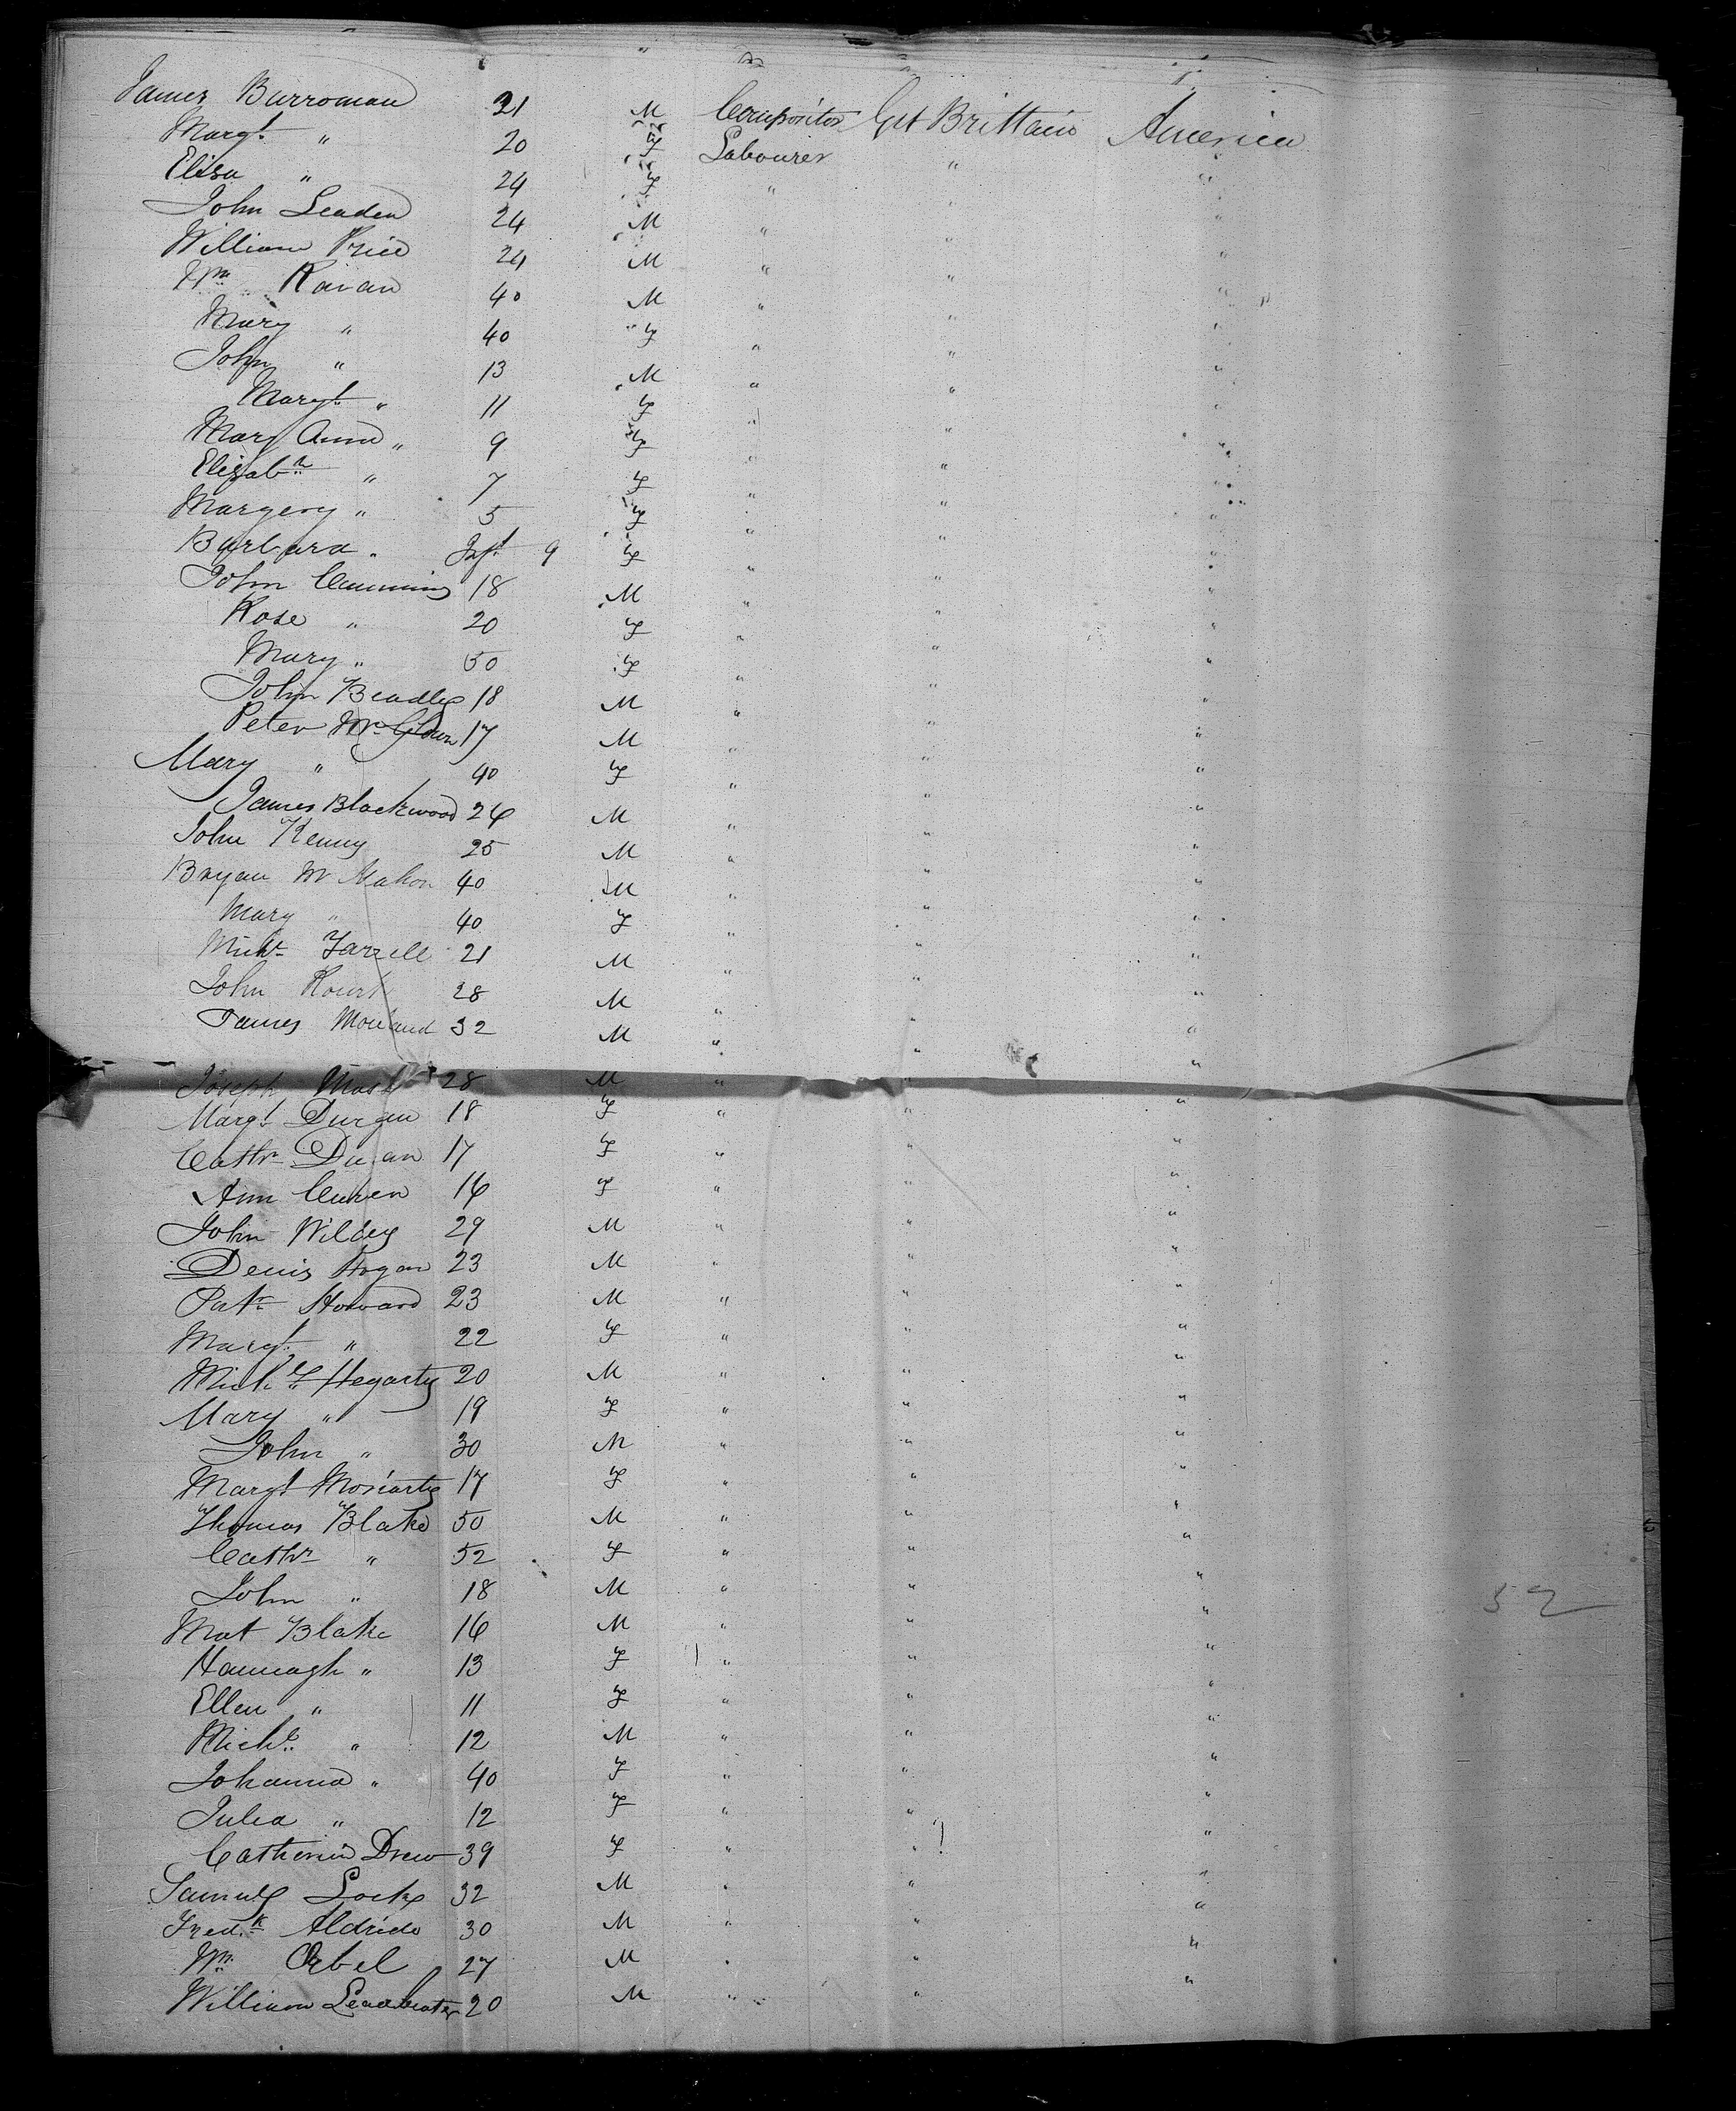 James Burroman 21 M Compositor Gt Brittain America
Margt " 20 F Labourer " "
Elisa " 24 F " " "
John Leaden 24 M " " "
William Price 24 M " " "
Wm Kavan 40 M " " "
Mary " 40 F " " "
John " 13 M " " "
Margt " 11 F " " "
Mary Ann " 9 F " " "
Elizabth " 7 F " " "
Margery " 5 F " " "
Barbara " Inft 9 F " " "
John Cumming 18 M " " "
Rose " 20 F " " "
Mary " 50 F " " "
John Beadley 18 M " " "
Peter McGlown 17 M " " "
Mary " 40 F " " "
James Blackwood 24 M " " "
John Kenny 25 M " " "
Bryan McMahon 40 M " " "
Mary " 40 F " " "
Michl Farrell 21 M " " "
John Rourk 28 M " " "
James Morland 32 M " " "
Joseph 28 M " " "
Margt Durgan 18 F " " "
Cathn 17 F " " "
Ann Curren 16 F " " "
John Wildey 29 M " " "
Denis Hogan 23 M " " "
Patk Howard 23 M " " "
Margt " 22 F " " "
Michl Hegarty 20 M " " "
Mary " 19 F " " "
John " 30 M " " "
Margt Moriarty 17 F " " "
Thomas Blake 50 M " " "
Cathn " 52 F " " "
John " 18 M " " "
Mat Blake 16 M " " "
52
Hannagh " 13 F " " "
Ellen " 11 F " " "
Michl " 12 M " " "
Johanna " 40 F " " "
Julia " 12 F " " "
Catherine Drew 39 F " " "
Samuel Locke 32 M " " "
Fredk Aldride 30 M " " "
Wm Orbel 27 M " " "
William Leadbeater 20 M " " "